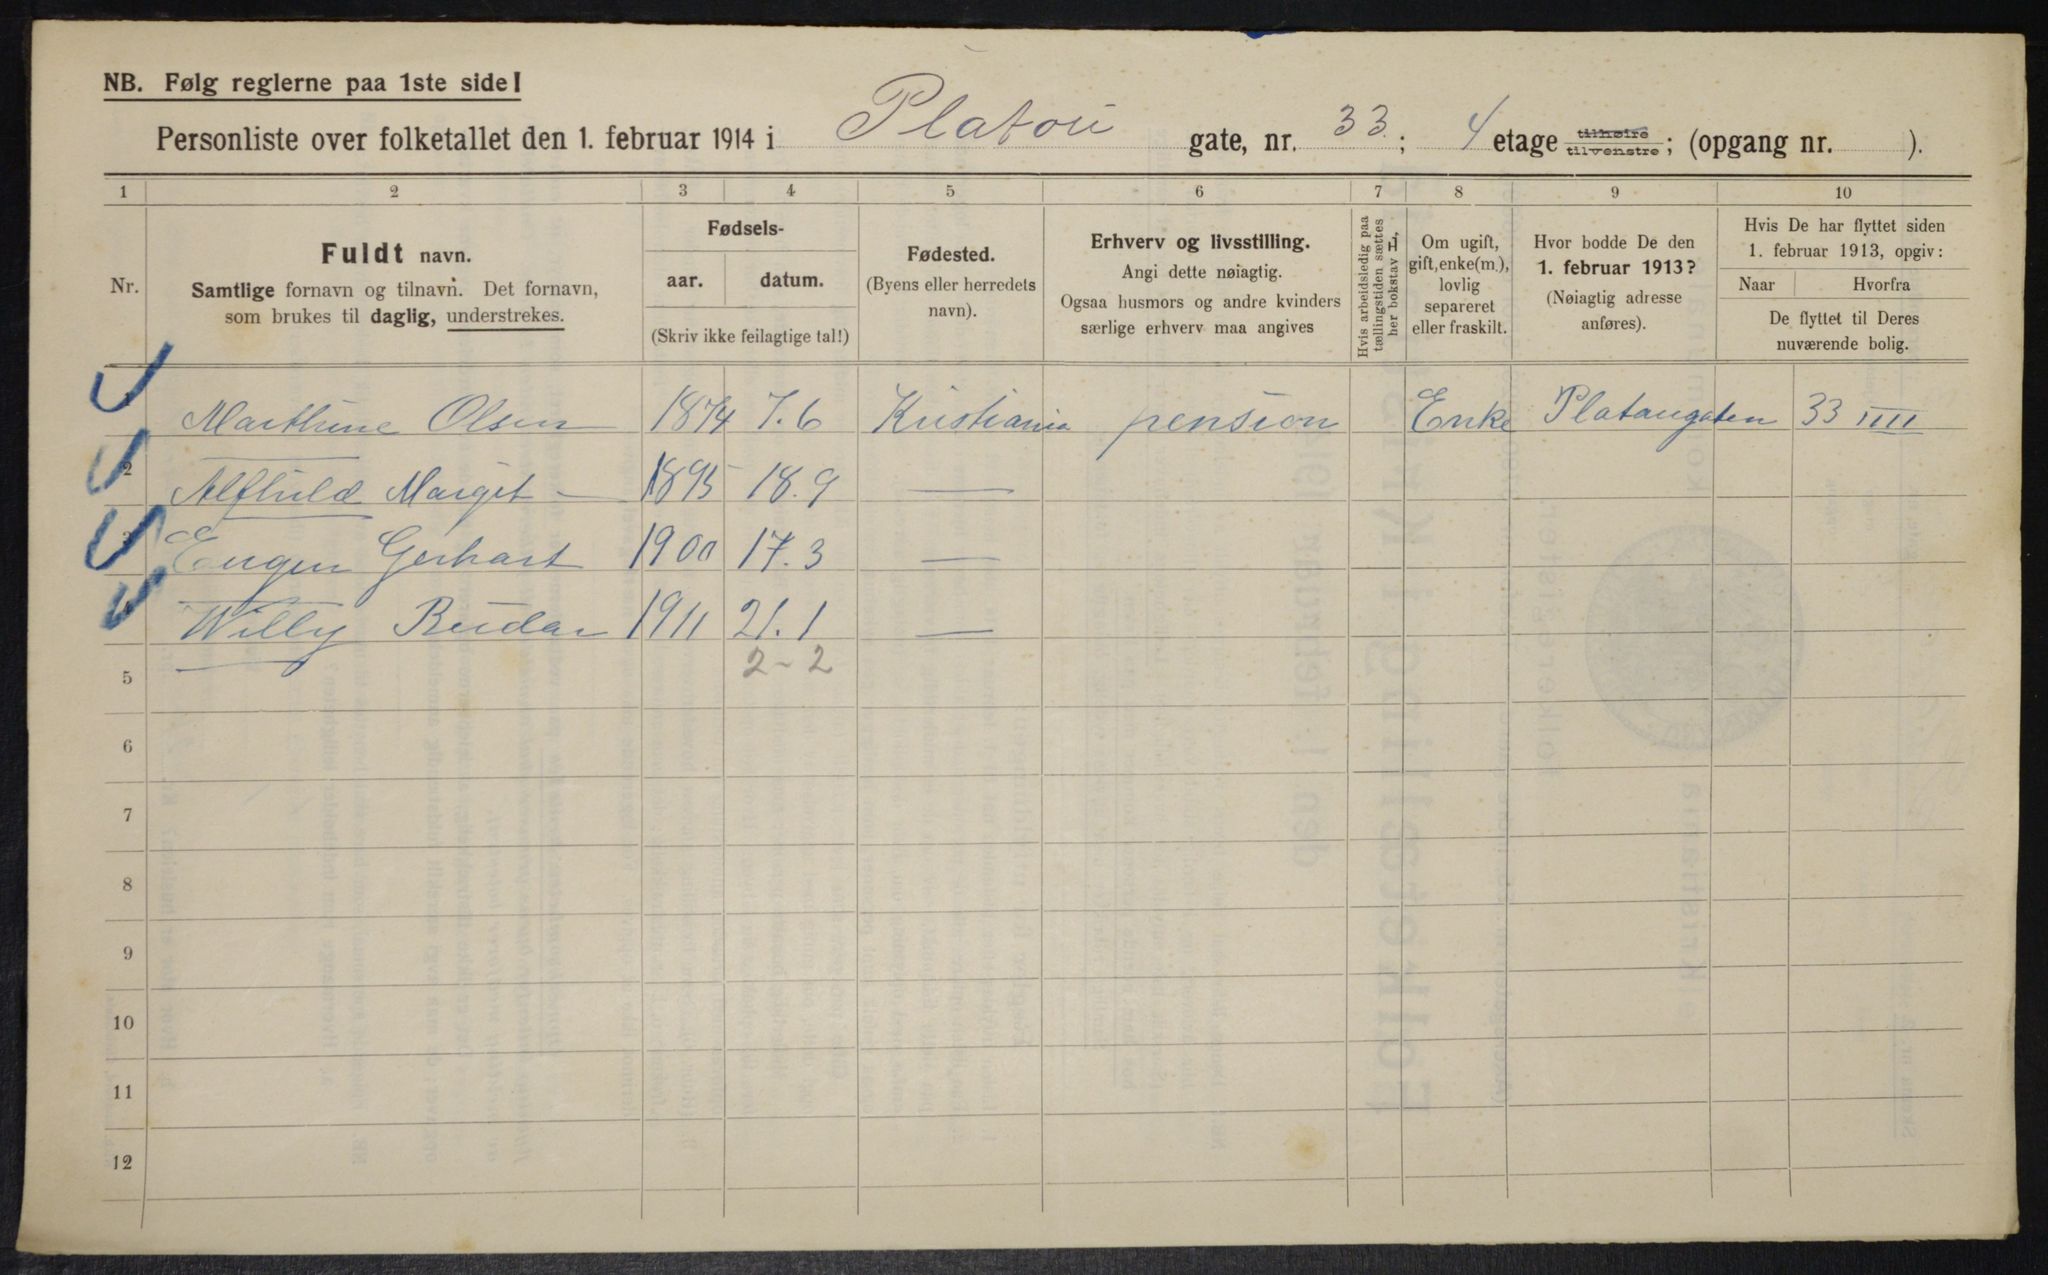 NB. Følg reglerne paa 1ste side!
Personliste over folketallet den 1. februar 1914 i Platou gate, nr. 33; 4 etage tilhøire tilvenstre; (opgang nr. ).
1 2 3 4 5 6 7 8 9 10
Nr.
Fuldt navn.
Samtlige fornavn og tilnavn. Det fornavn,
som brukes til daglig, understrekes.
Fødsels-
aar. datum.
(Skriv ikke feilagtige tal!)
Fødested.
(Byens eller herredets
navn).
Erhverv og livsstilling.
Angi dette nøiagtig.
Ogsaa husmors og andre kvinders
særlige erhverv maa angives
Hvis arbeidsledig paa
tællingstiden sættes
her bokstav L,
Om ugift,
gift, enke(m.),
lovlig
separeret
eller fraskilt.
Hvor bodde De den
1. februar 1913?
(Nøiagtig adresse
anføres).
Hvis De har flyttet siden
1. februar 1913, opgiv:
Naar Hvorfra
De flyttet til Deres
nuværende bolig.
Marthine Olsen 1874 7.6 Kristiania pension Enke Platougaten 33 IIII
2 Alfhild Margit — 1895 18.9 —
3 Eugen Gerhart 1900 17.3 —
4 Willy Reidar 1911 21.1 —
2-2
5
6
7
8
9
10
11
12